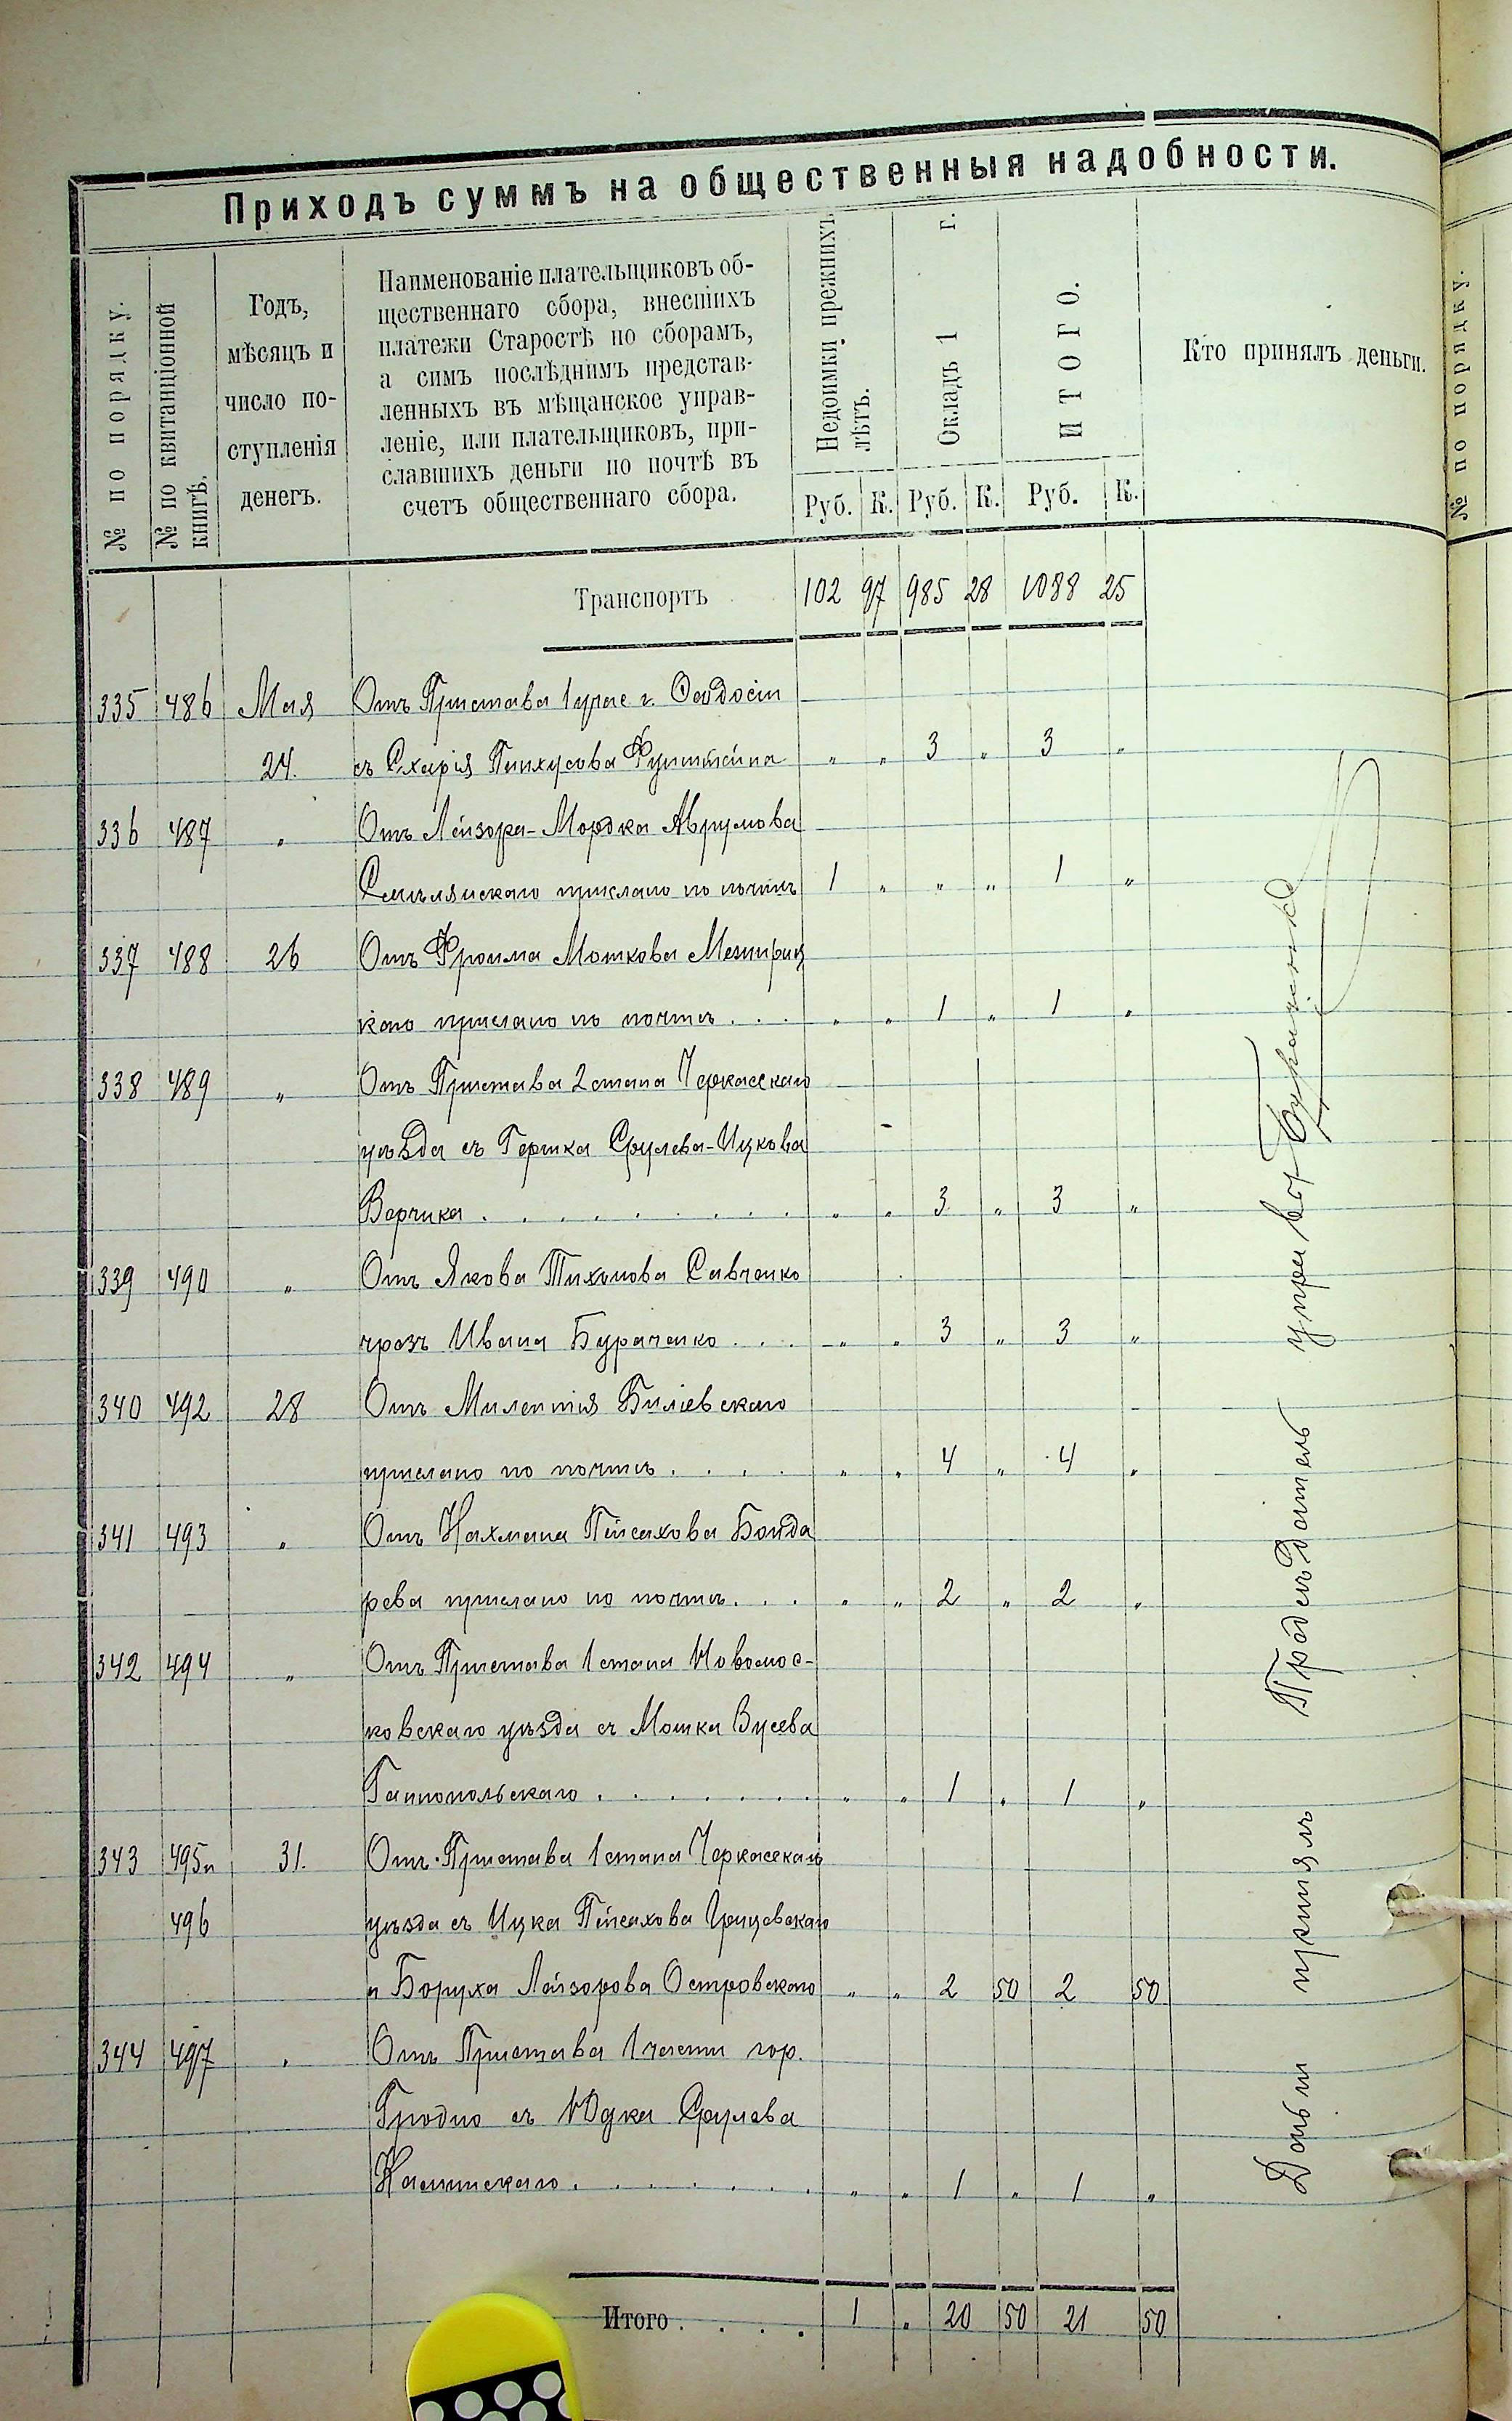 Приходъ суммъ на общественныя надобности.
№ по порядку.
№ по квитанціонной книгѣ.
Годъ,
мѣсяцъ и
число по-
ступленія
денегъ.
Наименованіе плательщиковъ об-
щественнаго сбора, внесшихъ
платежи Старостѣ по сборамъ,
а симъ послѣднимъ представ-
ленныхъ въ мѣщанское управ-
леніе, или плательщиковъ, при-
славшихъ деньги по почтѣ въ
счетъ общественнаго сбора.
Недоимки прежнихъ лѣтъ.
Окладъ 1 г.
ИТОГО.
Кто принялъ деньги.
Руб. К. Руб. К. Руб. К.
Транспортъ 102 97 985 28 1088 25
335 486 Мая Отъ Пристава 1 учас г. Ѳеодосіи
24. съ Схарія Пинхусова Фунштейна „ „ 3 „ 3 „
336 487 „ Отъ Лейзора-Мордка Аврумова
Смѣлянскаго прислано по почтѣ 1 „ „ „ 1 „
337 488 26 Отъ Фроима Мошкова Межириц
каго прислано по почтѣ . . . „ „ 1 „ 1 „
338 489 „ Отъ Пристава 2 стана Черкасскаго
уѣзда съ Гершка Срулева-Ицкова
Варчика . . . . . . . . . „ „ 3 „ 3 „
339 490 „ Отъ Якова Тихонова Савченко
чрезъ Ивана Бураченко . . . „ „ 3 „ 3 „
340 492 28 Отъ Милентія Биліевскаго
прислано по почтѣ . . . . „ „ 4 „ 4 „
341 493 „ Отъ Нахмана Пейсахова Бонда
рева прислано по почтѣ . . . „ „ 2 „ 2 „
342 494 „ Отъ Пристава 1 стана Новомос-
ковскаго уѣзда съ Мошка Зусева
Ганнопольскаго . . . . . . „ „ 1 „ 1 „
343 495 и 31. Отъ Пристава 1 стана Черкасскаго
496 уѣзда съ Ицка Пейсахова Грицевскаго
и Боруха Лейзорова Островскаго „ „ 2 50 2 50
344 497 „ Отъ Пристава 1 части гор.
Гродно съ Юдка Срулева
Каминскаго . . . . . . . „ „ 1 „ 1 „
Итого . . . . 1 „ 20 50 21 50
Деньги принялъ Предсѣдатель управы Бураченко
№ по порядку.